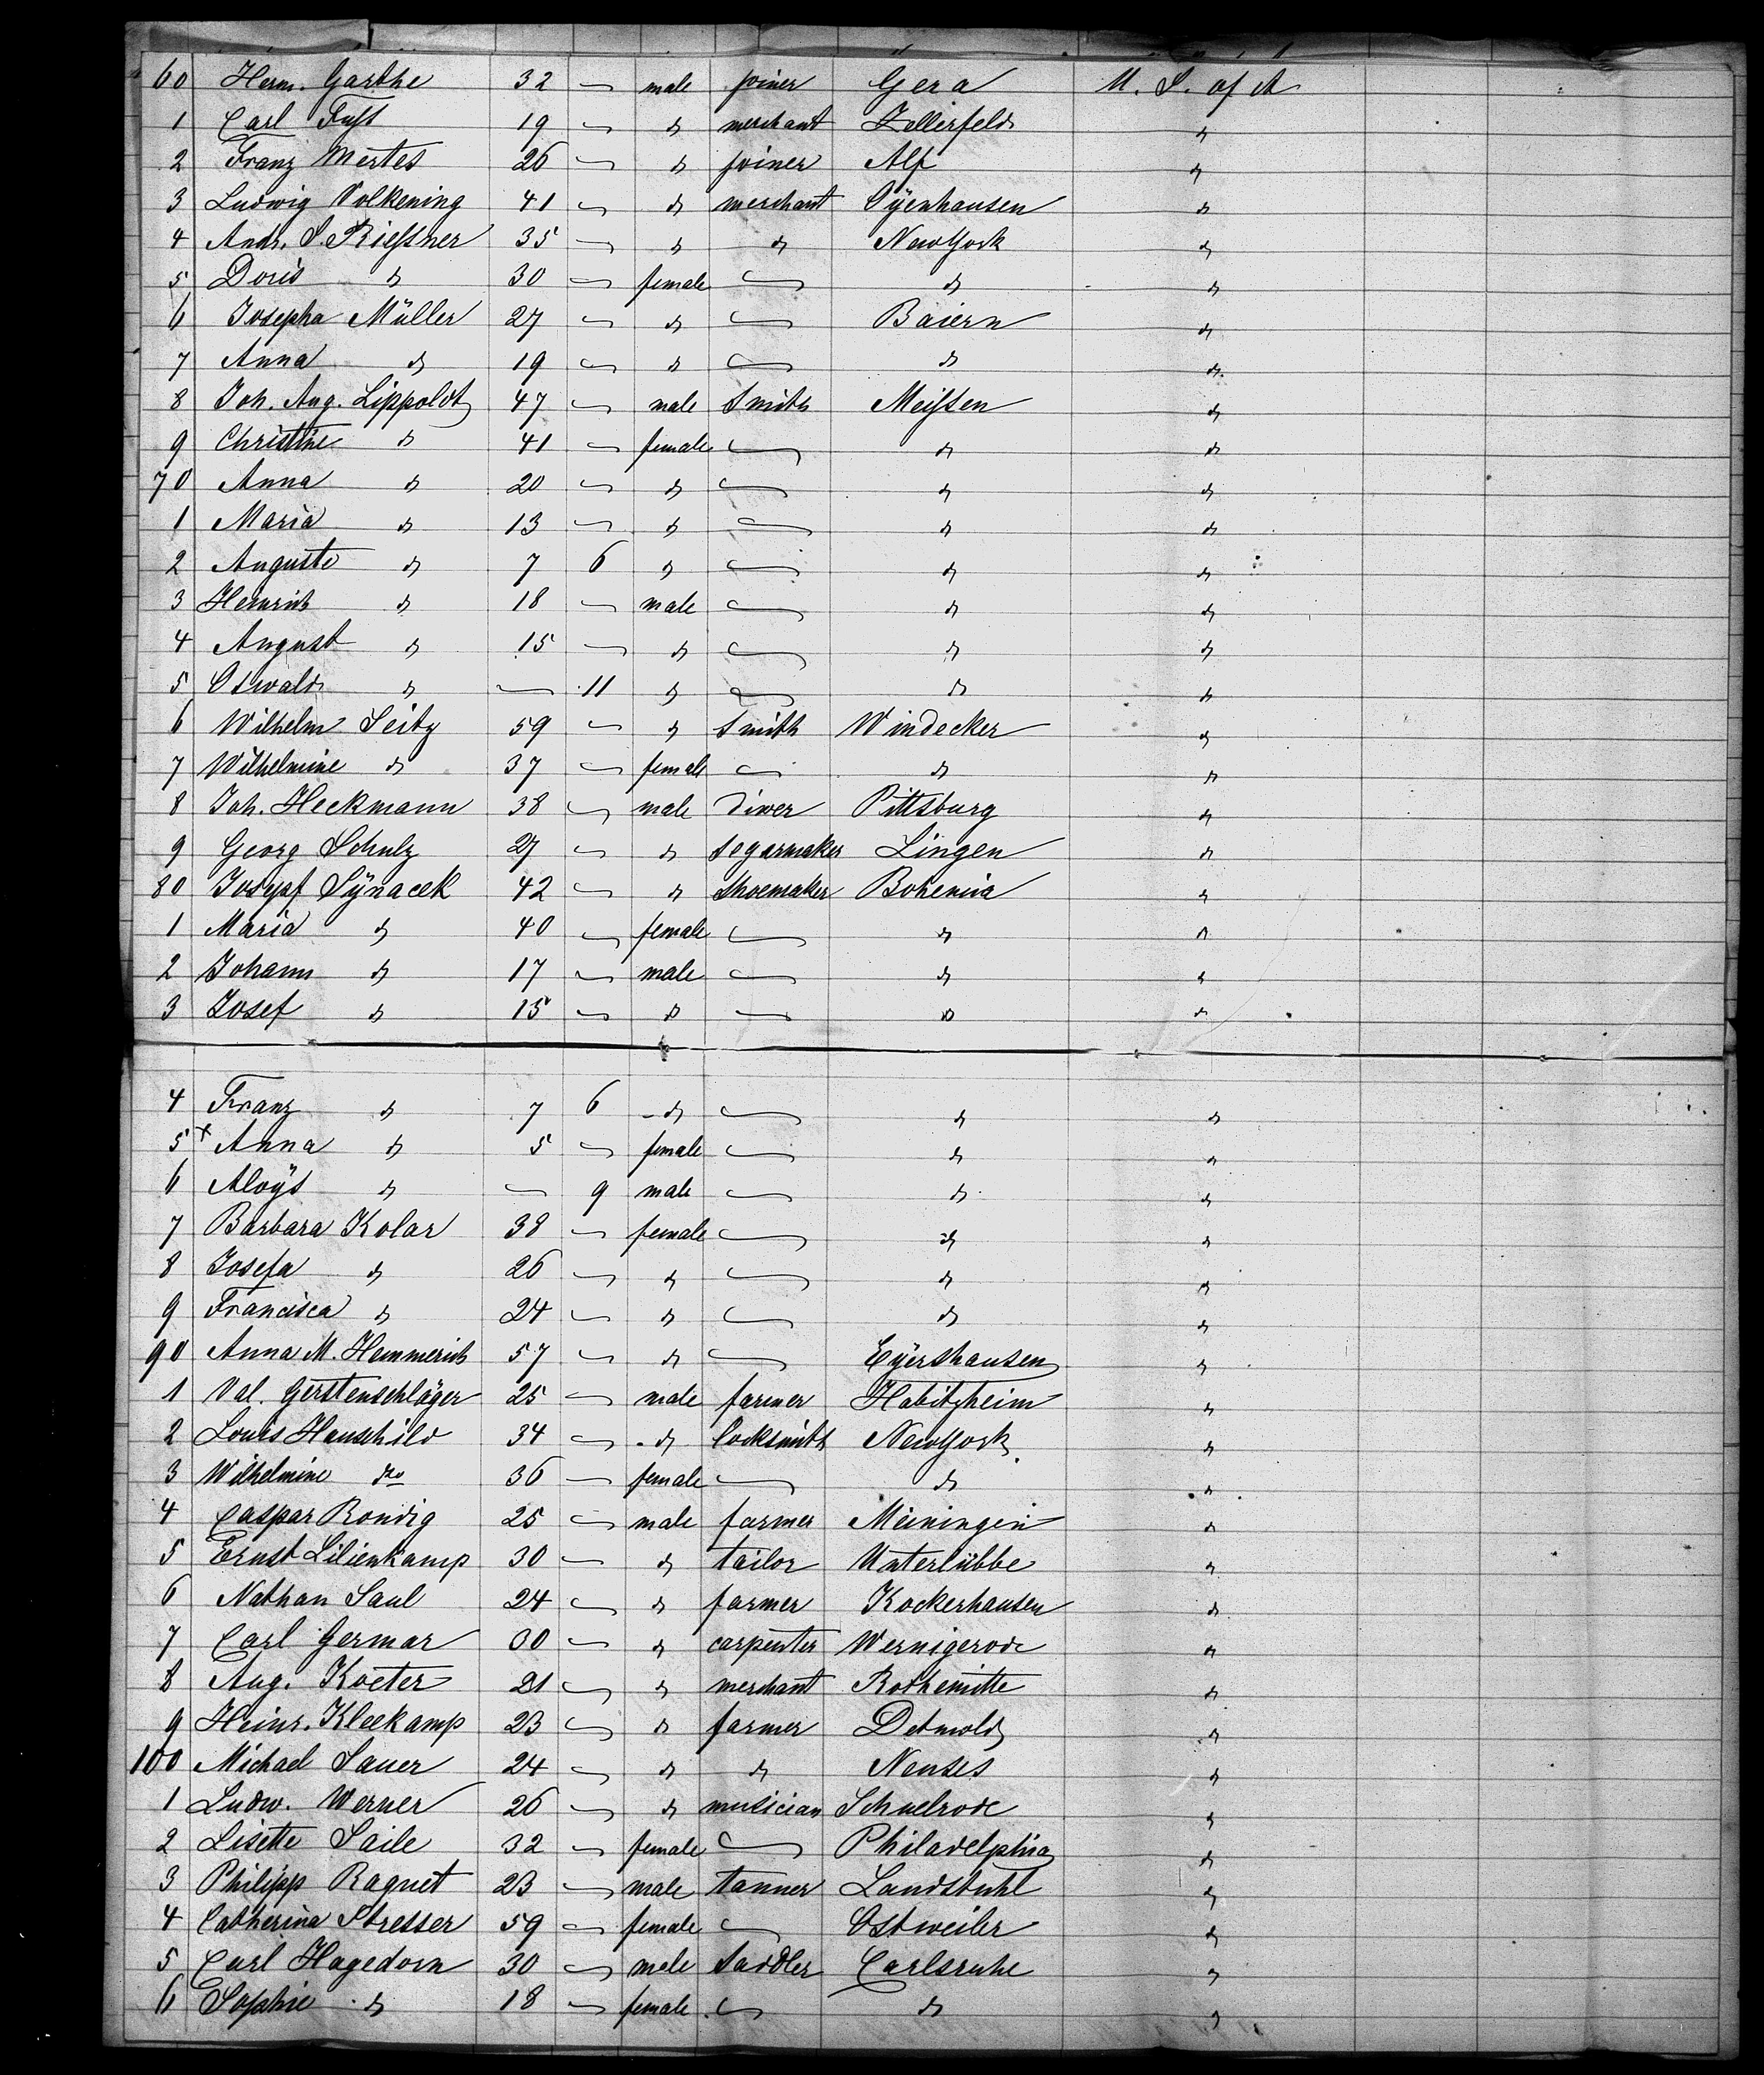 60 Herm. Garthe 32 — male joiner Gera U. S. of A
1 Carl Fuſs 19 — do merchant Zellerfeld do
2 Franz Mertes 26 — do joiner Alf do
3 Ludwig Volkening 41 — do merchant Oÿenhausen do
4 Andr. S. Rieſsner 35 — do do NewYork do
5 Doris do 30 — female — do do
6 Josepha Müller 27 — do — Baiern do
7 Anna do 19 — do — do do
8 Joh. Aug. Lippoldt 47 — male Smith Meiſsen do
9 Christine do 41 — female — do do
70 Anna do 20 — do — do do
1 Maria do 13 — do — do do
2 Auguste do 7 6 do — do do
3 Heinrich do 18 — male — do do
4 August do 15 — do — do do
5 Oswald do — 11 do — do do
6 Wilhelm Seitz 59 — do Smith Windecker do
7 Wilhelmine do 37 — female — do do
8 Joh. Heckmann 38 — male diver Pittsburg do
9 Georg Schulz 27 — do segarmaker Lingen do
80 Josepf Sÿnacek 42 — do Shoemaker Bohemia do
1 Maria do 40 — female — do do
2 Johann do 17 — male — do do
3 Josef do 15 — do — do do
4 Franz do 7 6 do — do do
5 x Anna do 5 — female — do do
6 Aloÿs do — 9 male — do do
7 Barbara Kolar 38 — female — do do
8 Josefa do 26 — do — do do
9 Francisca do 24 — do — do do
90 Anna M. Hemmerich 57 — do — Eÿershausen do
1 Val. Gerstenschläger 25 — male farmer Habitzheim do
2 Louis Hauschild 34 — do locksmith NewYork do
3 Wilhelmine do 36 — female — do do
4 Caspar Rondig 25 — male farmer Meiningen do
5 Ernst Lilienkamp 30 — do tailor Unterlübbe do
6 Nathan Saul 24 — do farmer Kockerhausen do
7 Carl Germar 30 — do carpenter Wernigerode do
8 Aug. Koeter 21 — do merchant Rothemitte do
9 Heinr. Kleekamp 23 — do farmer Detmold do
100 Michael Sauer 24 — do do Neuses do
1 Ludw. Werner 26 — do musician Schuelrode do
2 Lisette Saile 32 — female — Philadelphia do
3 Philipp Raquet 23 — male tanner Landstuhl do
4 Catherina Stresser 59 — female — Ostweiler do
5 Carl Hagedorn 30 — male Saddler Carlsruhe do
6 Sophie do 18 — female — do do